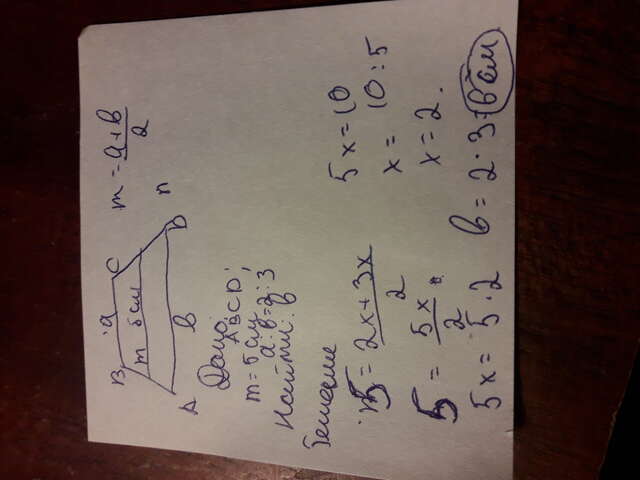 B a C
m 5 см
A b D
m = a+b
2
n
Дано:
ABCD;
m = 5 см
a:b = 2:3
Найти: b
Решение
5 = 2x+3x
2
5 = 5x
2
5x = 5·2
5x = 10
x = 10:5
x = 2.
b = 2·3=6 см